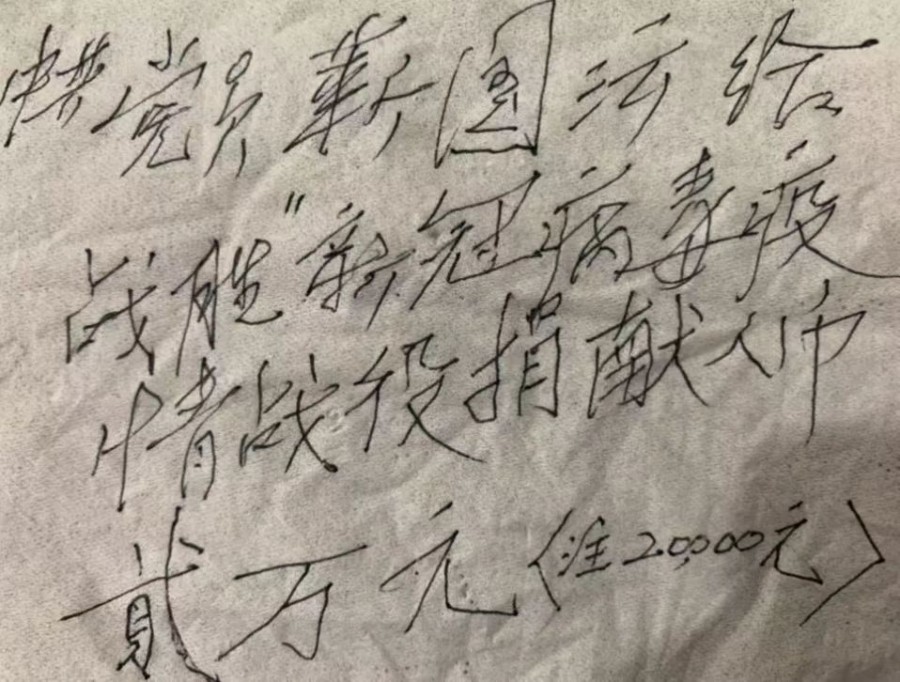 中共党员靳国给
战胜"新冠病毒疫
情战役捐献人币
貳万元〈注20000元〉